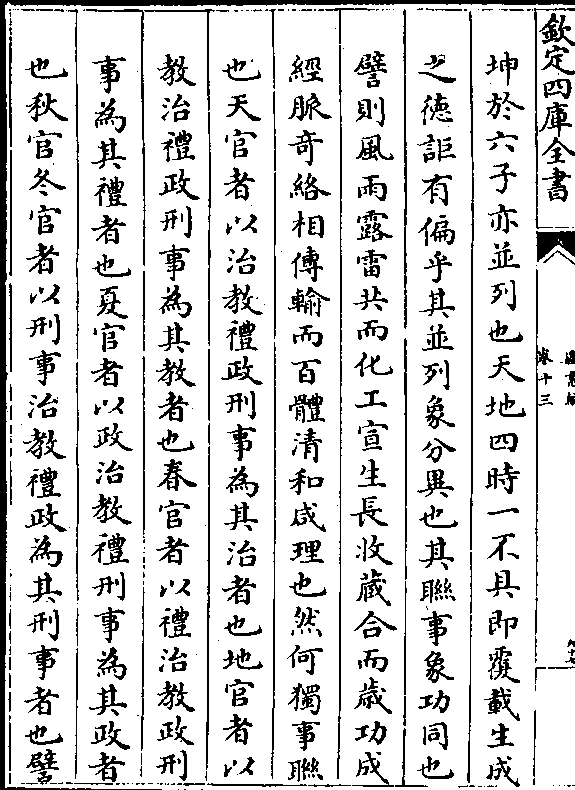 欽定四庫全書
卷十三
坤於六子亦並列也天地四時一不具即覆載生成
之德詎有偏乎其並列象分異也其聯事象功同也
譬則風雨露雷共而化工宣生長收蔵合而歳功成
經脈奇絡相傳輸而百體清和咸理也然何獨事聯
也天官者以治教禮政刑事為其治者也地官者以
教治禮政刑事為其教者也春官者以禮治教政刑
事為其禮者也夏官者以政治教禮刑事為其政者
也秋官冬官者以刑事治教禮政為其刑事者也譬